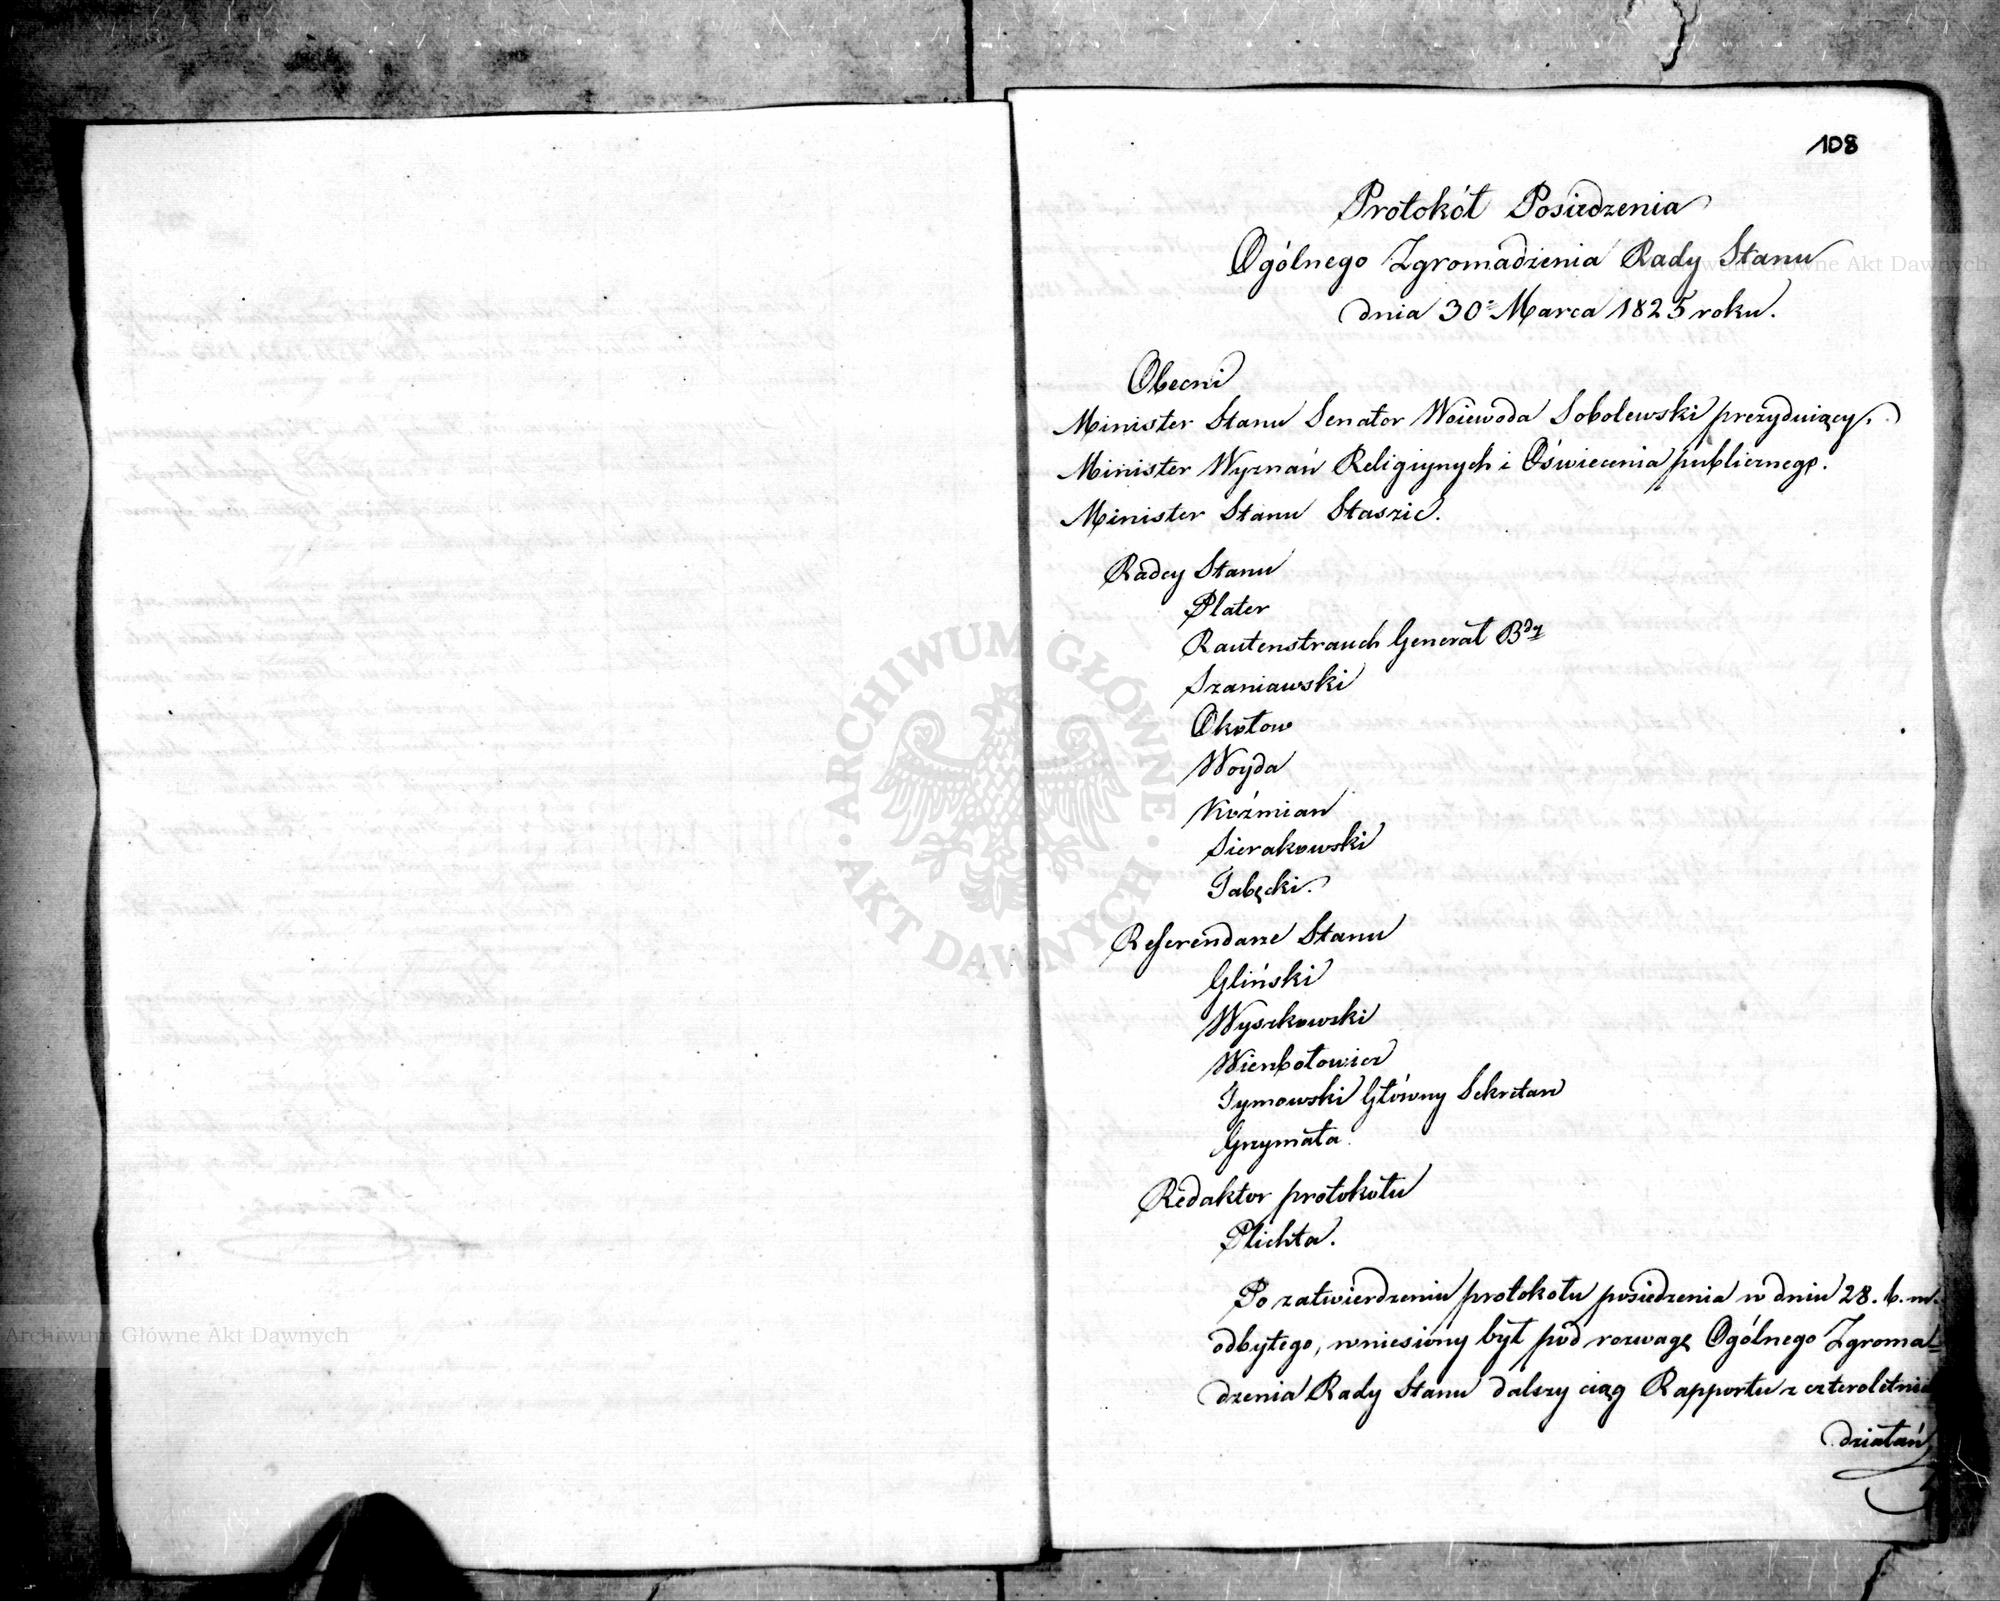 108
Protokół Posiedzenia
Ogólnego Zgromadzenia Rady Stanu
dnia 30. Marca 1825 roku.
Obecni
Minister Stanu Senator Woiewoda Sobolewski prezyduiący.
Minister Wyznań Religiynych i Oświecenia publicznego.
Minister Stanu Staszic.
Radcy Stanu
Plater
Rautenstrauch Generał Bdy
Szaniawski
Okołow
Woyda
Koźmian
Sierakowski
Tabęcki.
Referendarze Stanu
Gliński
Wyszkowski
Wierzbołowicz
Tymowski Główny Sekretarz
Grzymała
Redaktor protokołu
Plichta.
Po zatwierdzeniu protokołu posiedzenia w dniu 28. b. m.
odbytego, wniesiony był pod rozwagę Ogólnego Zgroma-
dzenia Rady Stanu dalszy ciąg Rapportu z czteroletnich
działań
ARCHIWUM GŁÓWNE AKT DAWNYCH
Archiwum Główne Akt Dawnych
Archiwum Główne Akt Dawnych